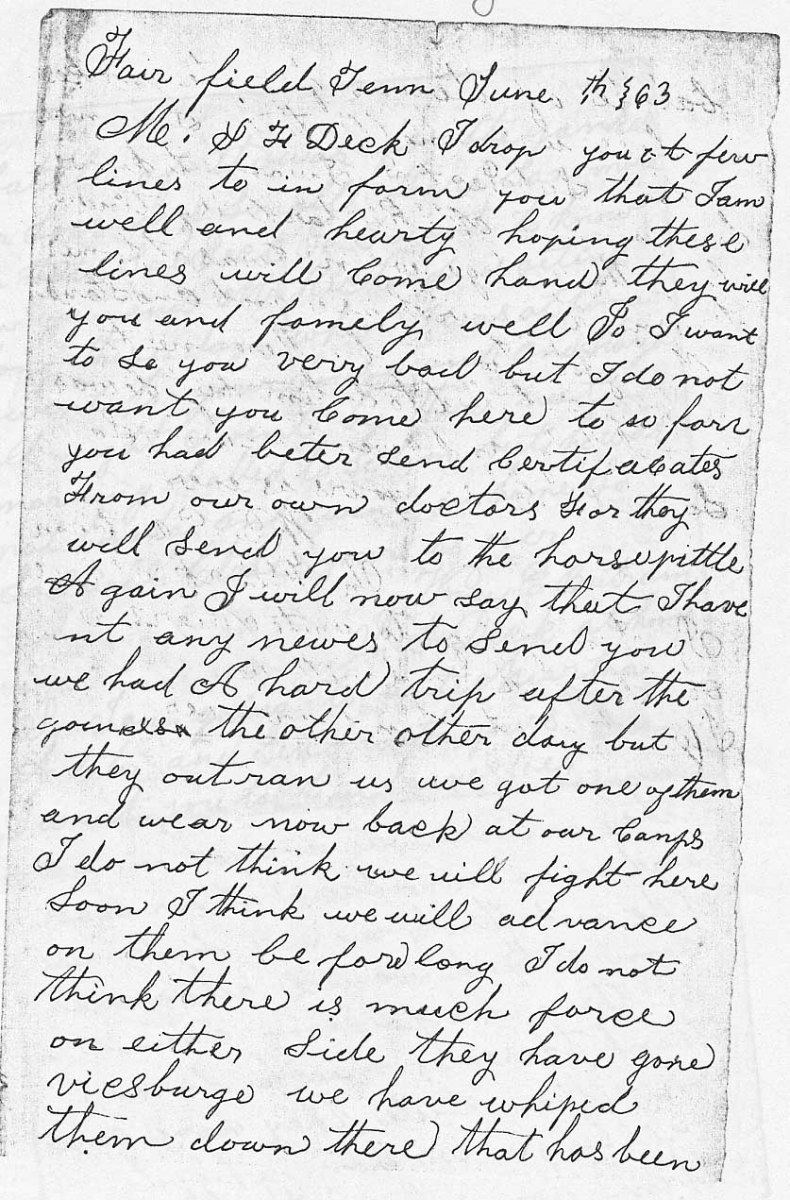 Fair field Tenn June th 63
Mr. S H Deck I drop you a few
lines to in form you that I am
well and hearty hoping these
lines will Come hand they will
you and famely well So I want
to se you very bad but I do not
want you Come here to so farr
you had beter send Certifacates
From our own doctors For they
will send you to the horsepittle
A gain I will now say that I have
nt any newes to send you
we had A hard trip after the
the other other day but
they out ran us we got one of them
and wear now back at our Camps
I do not think we will fight here
Soon I think we will advance
on them be for long I do not
think there is much force
on either Side they have gone
vicsburge we have whiped
them down there that has been